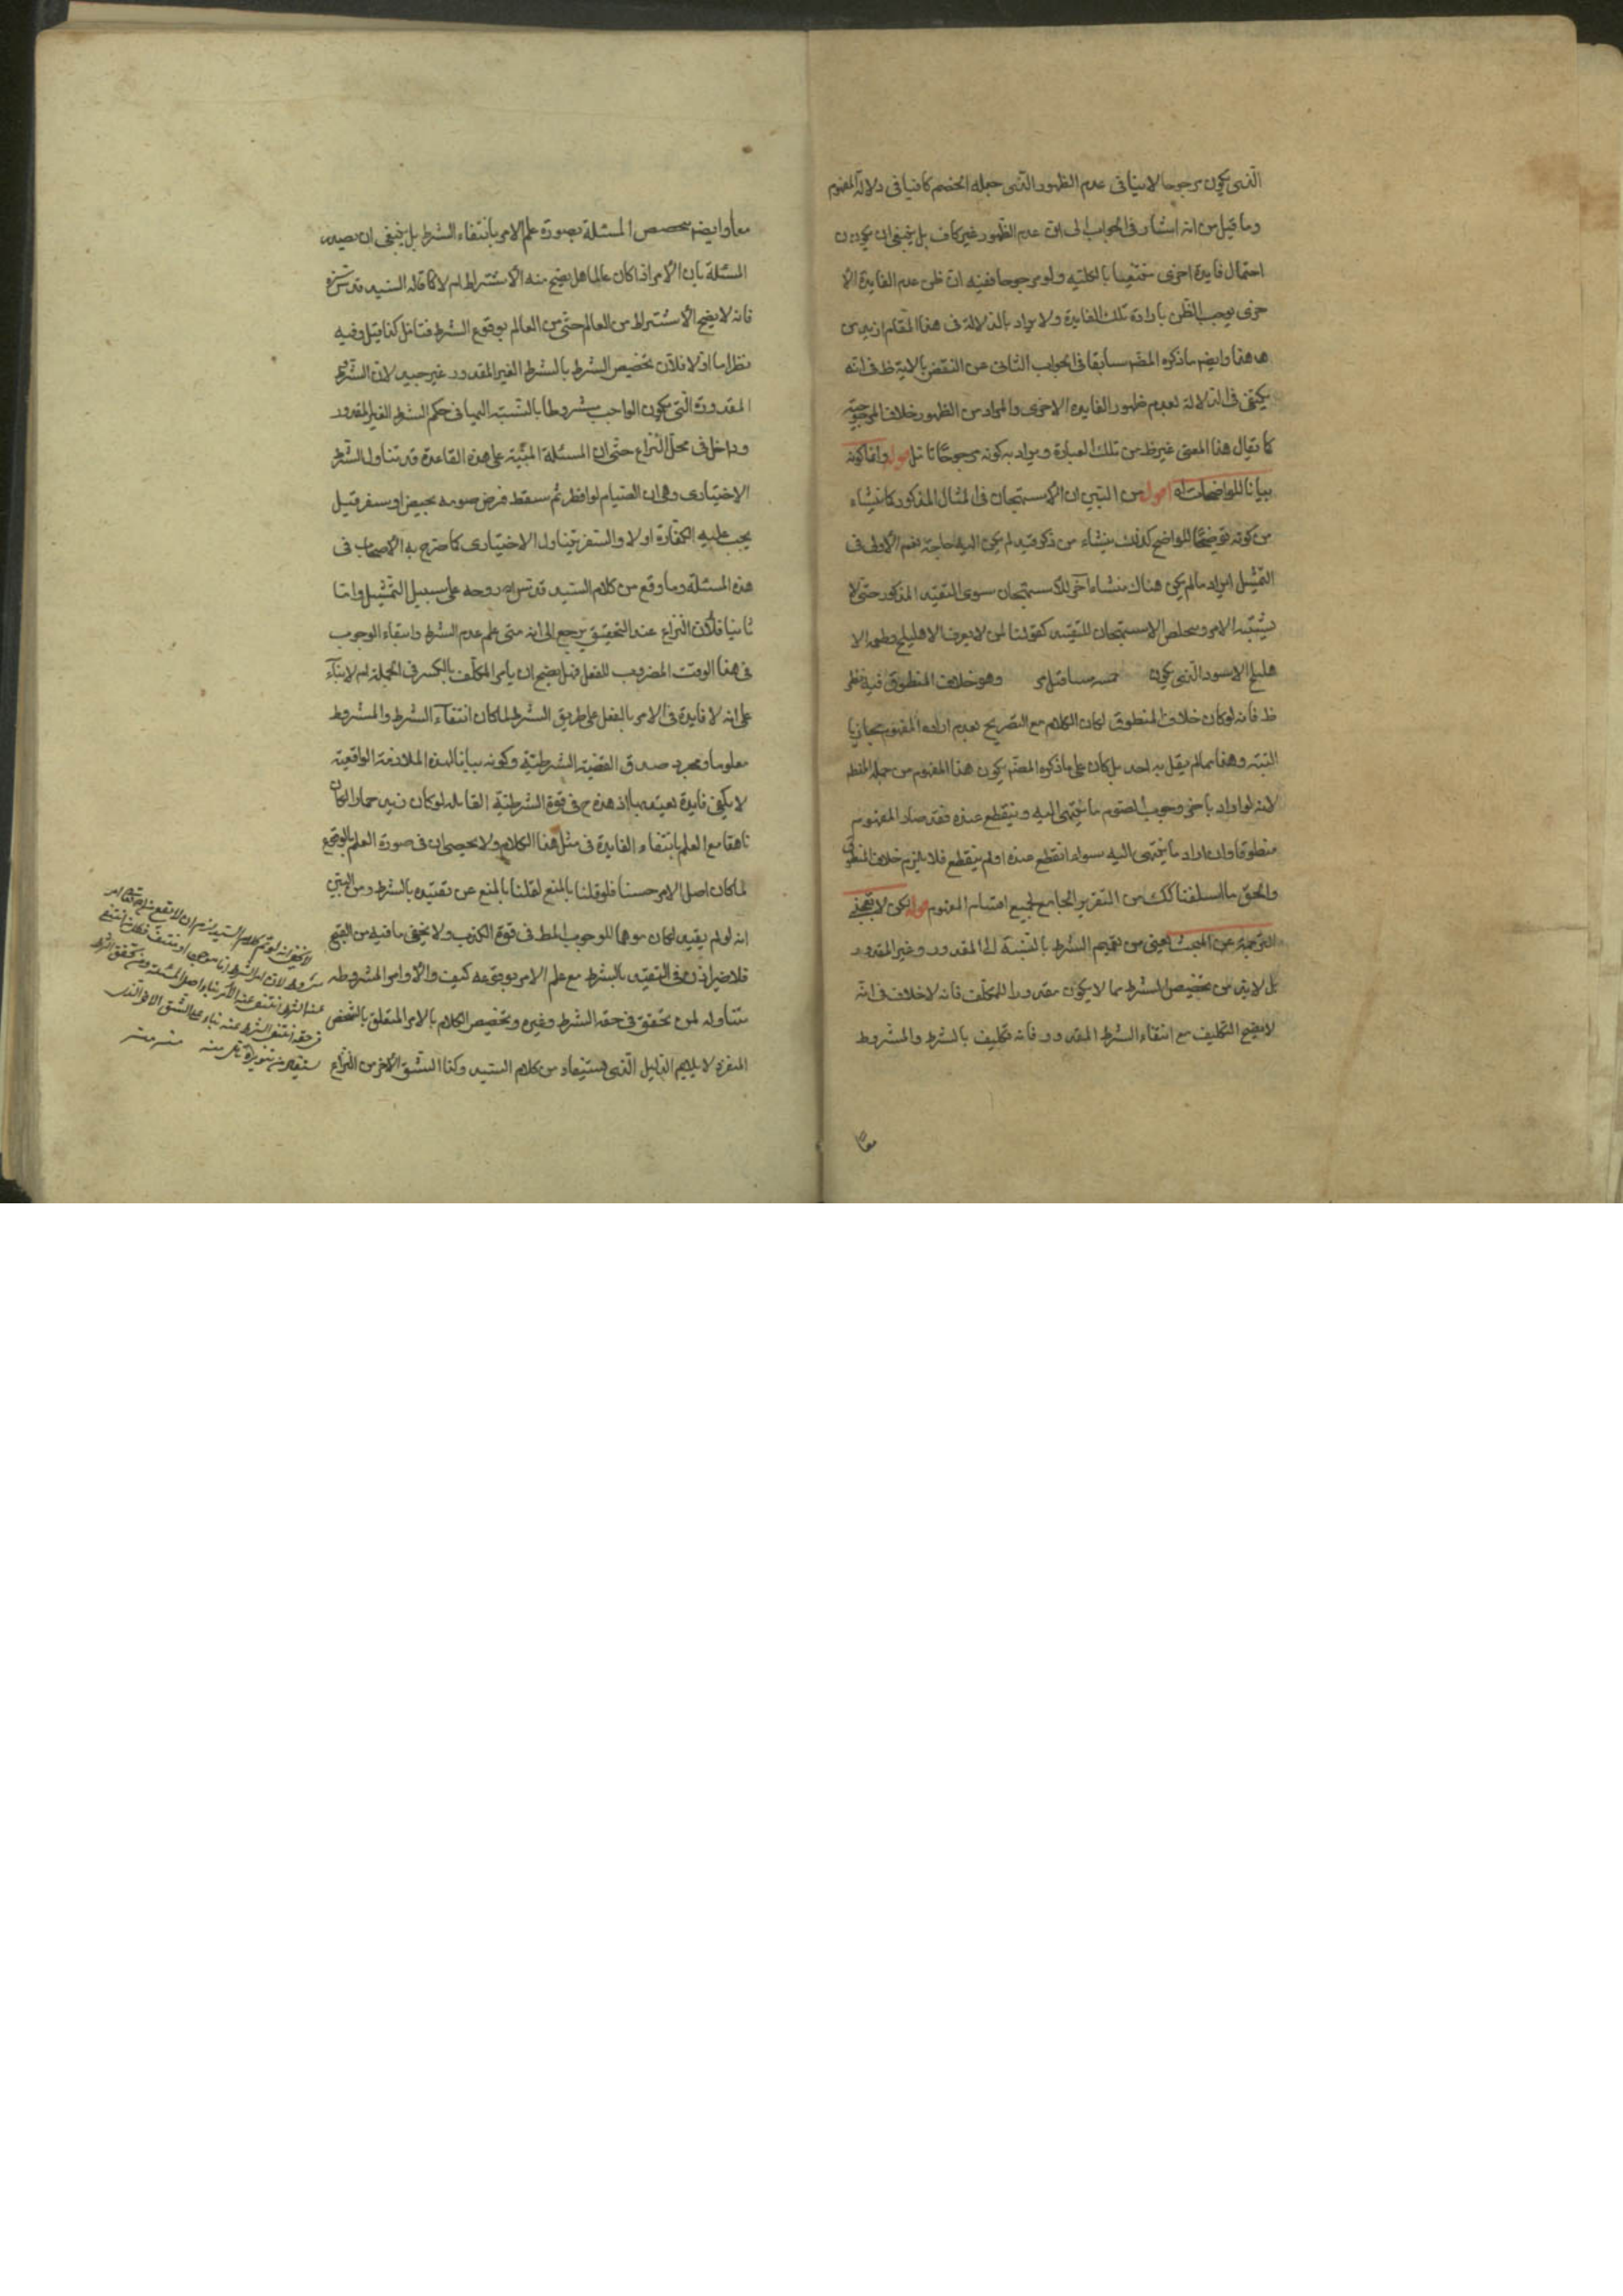 الذى يكون مرجوحا لا ينافى عدم الظهور الذى جعله الخصم كافيا فى دلالة المفهوم
وما قيل من انه اشار فى الجواب الى ان عدم الظهور غير كاف بل ينبغى ان يكون
احتمال فايدة اخرى منتفيا بالكلية ولو مرجوحا ففيه ان ظن عدم الفايدة الا
خرى يوجب الظن بارادة تلك الفايدة ولا يراد بالدلالة فى هذا المقام ازيد من
هذا وايضا ما ذكره المصنف سابقا فى الجواب الثانى عن النقض بالاية ظ فى انه
يكتفى فى الدلالة لعدم ظهور الفايدة الاخرى والمراد من الظهور خلاف المرجوحية
كما يقال هذا المعنى غير ظ من تلك العبارة ويراد به كونه مرجوحا تامل قوله واما كونه
بيانا للواضحات اه اقول من البين ان الاستهجان فى المثال المذكور كما ينشاء
من كونه توضيحا للواضح كذلك ينشاء من ذكر قيد لم يكن اليه حاجة نعم الاولى فى
التمثيل ايراد ما لم يكن هناك منشاء آخر للاستهجان سوى التقيد المذكور حتى لا
يشتبه الامر ويخلص الاستهجان للتقييد كقولنا لمن لا يعرف الاهليلج وطعمه الا
هليلج الاسود الذى يكون وهو خلاف المنطوق فيه نظر
ظ فانه لو كان خلاف المنطوق لكان الكلام مع التصريح لعدم ارادة المفهوم مجازيا
البتة وهذا مما لم يقل به احد بل كان على ما ذكره المصنف يكون هذا المفهوم من جملة المنطو
لانه لو اراد باخر وجوب الصوم ما ينتهى اليه وينقطع عنده فقد صار المفهوم
منطوقا وان اراد ما ينتهى اليه سواء انقطع عنده او لم ينقطع فلا يلزم خلاف المنطوق
والحق ما اسلفنا لك من التقرير الجامع لجميع اقسام المفهوم قوله لكن لا يعجبنى
الترجمة عن المبحث يعنى من تعميم الشرط بالنسبة الى المقدور وغير المقدور
بل لا بد من تخصيص الشرط بما لا يكون مقدورا للمكلف فانه لا خلاف فى انه
لا يصح التكليف مع انتفاء الشرط المقدور فانه تكليف بالشرط والمشروط
معا
معا وايضا تخصيص المسئلة بصورة علم الامر بانتفاء الشرط بل ينبغى ان يصدر
المسئلة بان الامر اذا كان عالما هل يصح منه الاشتراط ام لا كما قاله السيد قدس سره
فانه لا يصح الاشتراط من العالم حتى من العالم بوقوع الشرط فتامل كذا قيل وفيه
نظر اما اولا فلان تخصيص الشرط بالشرط الغير المقدور غير جيد لان الشرط
المقدورة التى يكون الواجب مشروطا بالنسبة اليها فى حكم الشرط الغير المقدور
وداخل فى محل النزاع حتى ان المسئلة المبنية على هذه القاعدة قد تناول الشرط
الاختيارى وهى ان الصيام لو افطر ثم سقط فرض صومه بحيض او سفر قيل
يجب عليه الكفارة او لا والسفر يتناول الاختيارى كما صرح به الاصحاب فى
هذه المسئلة وما وقع من كلام السيد قدس الله روحه على سبيل التمثيل واما
ثانيا فلان النزاع عند التحقيق يرجع الى انه متى علم عدم الشرط وانتفاء الوجوب
فى هذا الوقت المضروب للفعل فهل يصح ان يامر المكلف بالكسر فى الجملة ام لا بناء
على انه لا فايدة فى الامر بالفعل على طريق الشرط لما كان انتفاء الشرط والمشروط
معلوما ومجرد صدق القضية الشرطية وكونه بيانا لهذه الملازمة الواقعية
لا يكفى فايدة يعتد بها اذ هذه ح فى قوة الشرطية القايلة لو كان زيد حمارا لكان
ناهقا مع العلم بانتفاء الفايدة فى مثل هذا الكلام ولا يخفى ان فى صورة العلم بالوقوع
لما كان اصل الامر حسنا فلو قلنا بالمنع لقلنا بالمنع عن تقييده بالشرط ومن البين
انه لو لم يقيد لكان موهما للوجوب المط فى قوة الكذب ولا يخفى ما فيه من القبح
فلا ضير اذن فى التقييد بالشرط مع علم الامر بوقوعه كيف والاوامر المشروطة
متناوله لمن تحقق فى حقه الشرط وغيره وتخصيص الكلام بالامر المتعلق بالشخص
المنفرد لا يلايم الدليل الذى يستفاد من كلام السيد وكذا الشق الاخر من النزاع